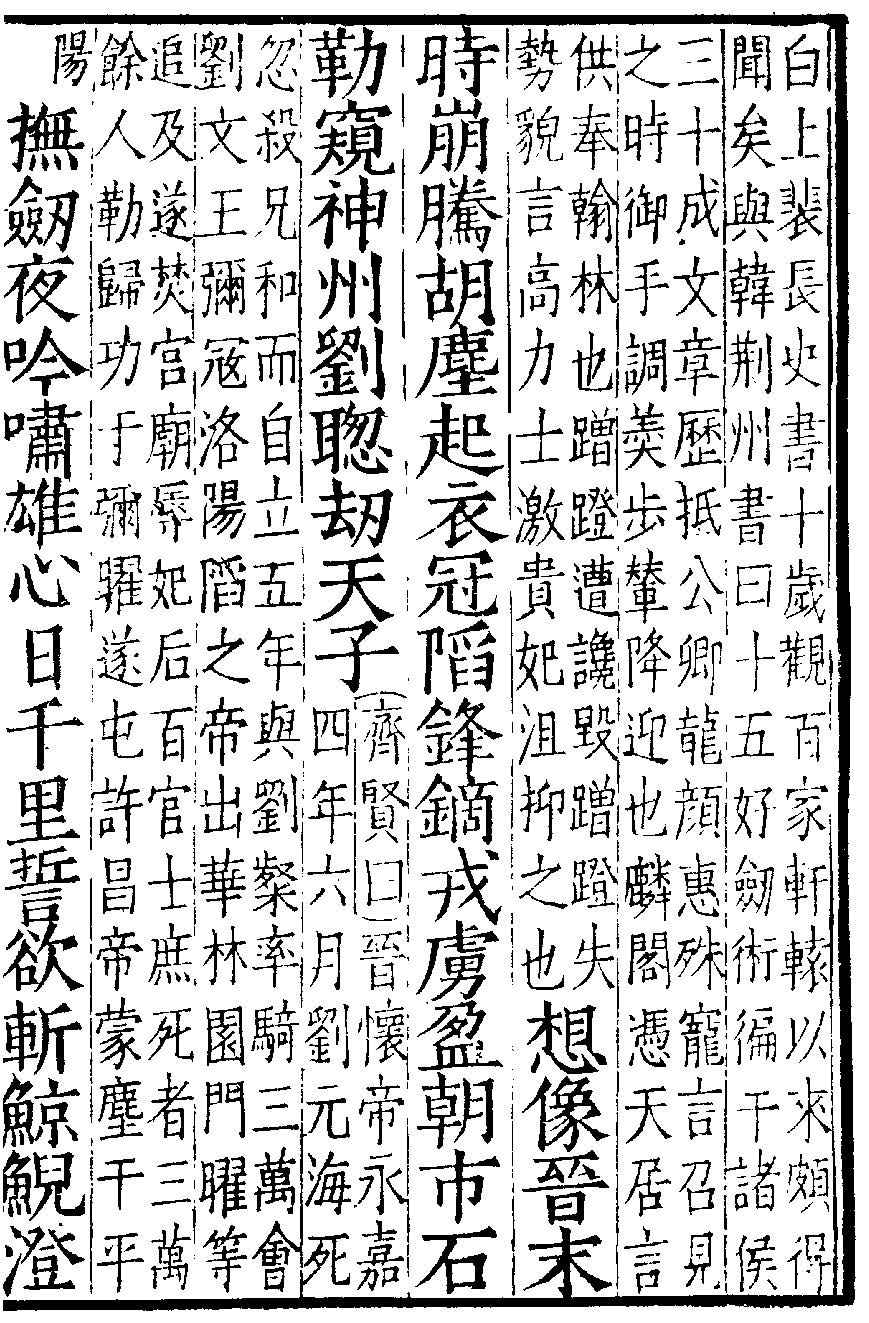 白上裴長史書十歲觀百家軒轅以來頗得
聞矣與韓荆州書曰十五好劔術徧干諸侯
三十成文章歷抵公卿龍顔惠殊寵言召見
之時御手調羮步輦降迎也麟閣憑天居言
供奉翰林也蹭蹬遭讒毀蹭蹬失
勢貌言高力士激貴妃沮抑之也
想像晉末
時崩騰胡塵起衣冠陷鋒鏑戎虜盈朝市石
勒窺神州劉聦劫天子
齊賢曰晉懷帝永嘉
四年六月劉元海死
忽殺兄和而自立五年與劉粲率騎三萬會
劉文王彌冦洛陽陷之帝出華林園門曜等
追及遂焚宫廟辱妃后百官士庶死者三萬
餘人勒歸功于彌曜遂屯許昌帝蒙塵于平
陽
撫劔夜吟嘯雄心日千里誓欲斬鯨鯢澄